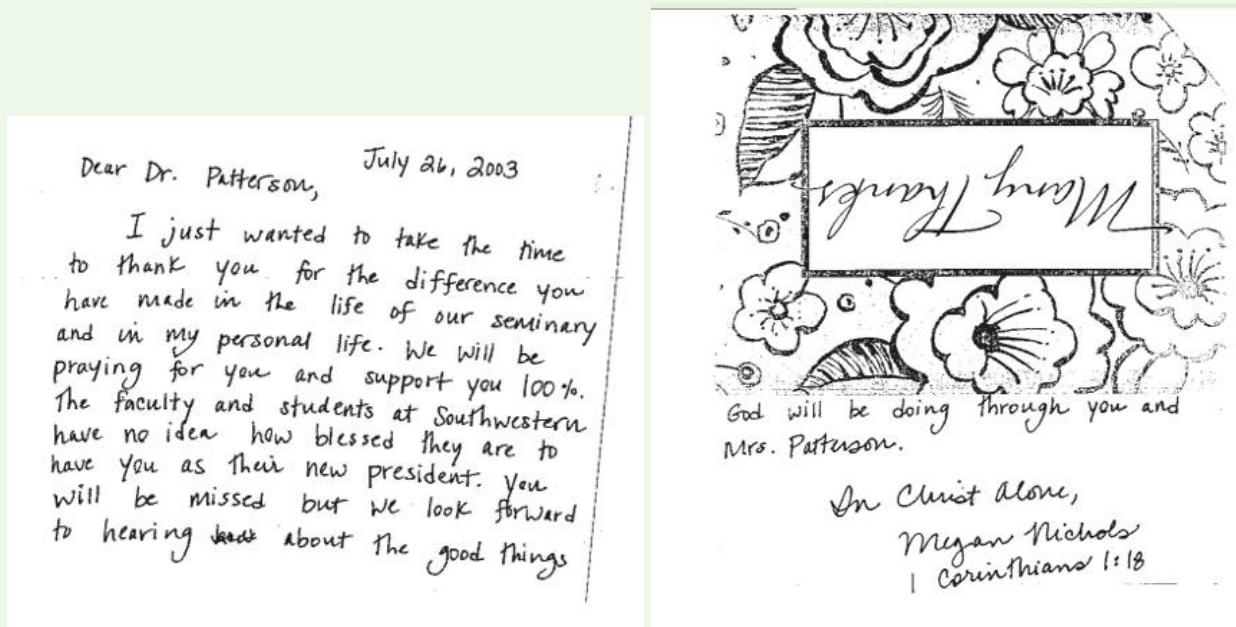 July 26, 2003
Dear Dr. Patterson,
I just wanted to take the time
to thank you for the difference you
have made in the life of our seminary
and in my personal life. We will be
praying for you and support you 100%.
The faculty and students at Southwestern
have no idea how blessed they are to
have you as their new president. You
will be missed but we look forward
to hearing about the good things
Many Thanks
God will be doing through you and
Mrs. Patterson.
In Christ Alone,
Megan Nichols
1 Corinthians 1:18